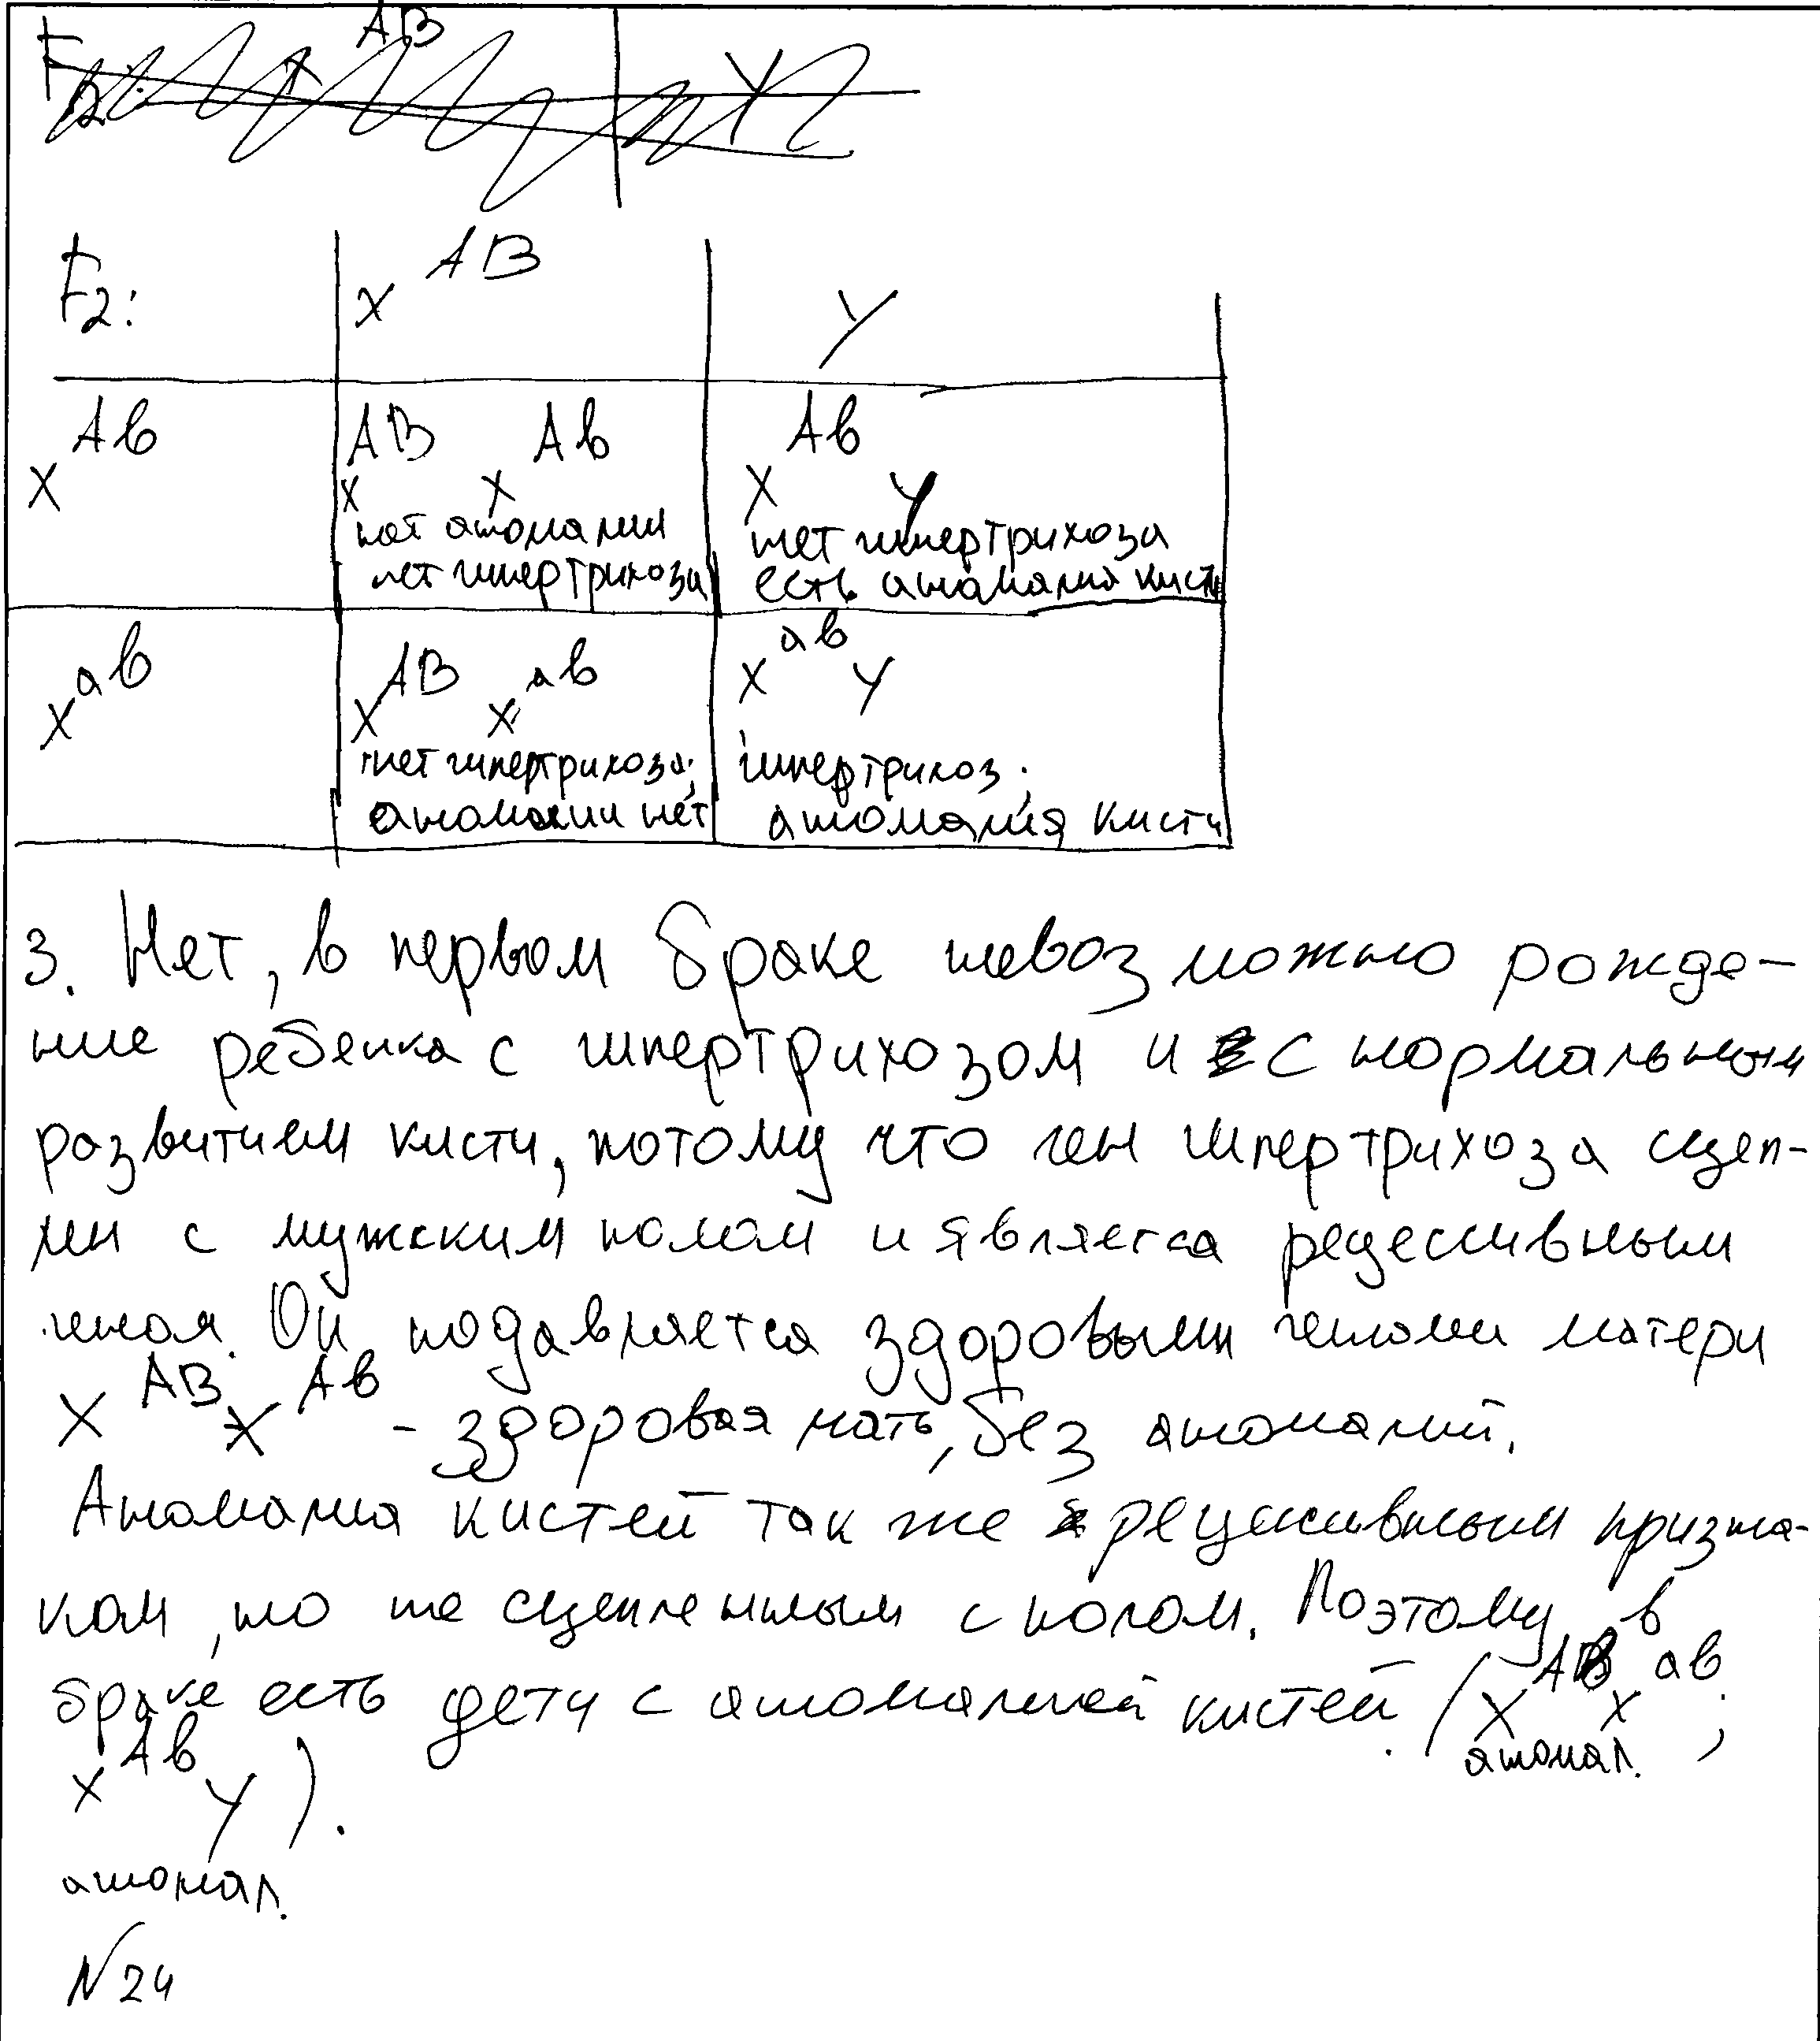 F2: X^AB Y
F2: X^AB Y
X^Ab X^AB X^Ab X^Ab Y
нет аномалии нет гипертрихоза
нет гипертрихоза есть аномалия кисти
X^ab X^AB X^ab X^ab Y
нет гипертрихоза; гипертрихоз;
аномалии нет аномалия кисти
3. Нет, в первом браке невозможно рожде-
ние ребенка с гипертрихозом и с нормальным
развитием кисти, потому что ген гипертрихоза сцеп-
лен с мужским полом и является рецессивным
геном. Он подавляется здоровыми генами матери
X^AB X^Ab - здоровая мать, без аномалий.
Аномалия кистей так же рецессивным призна-
ком, но не сцепленным с полом. Поэтому в
браке есть дети с аномалией кистей (X^Ab X^ab;
аномал.
X^Ab Y).
аномал.
N24